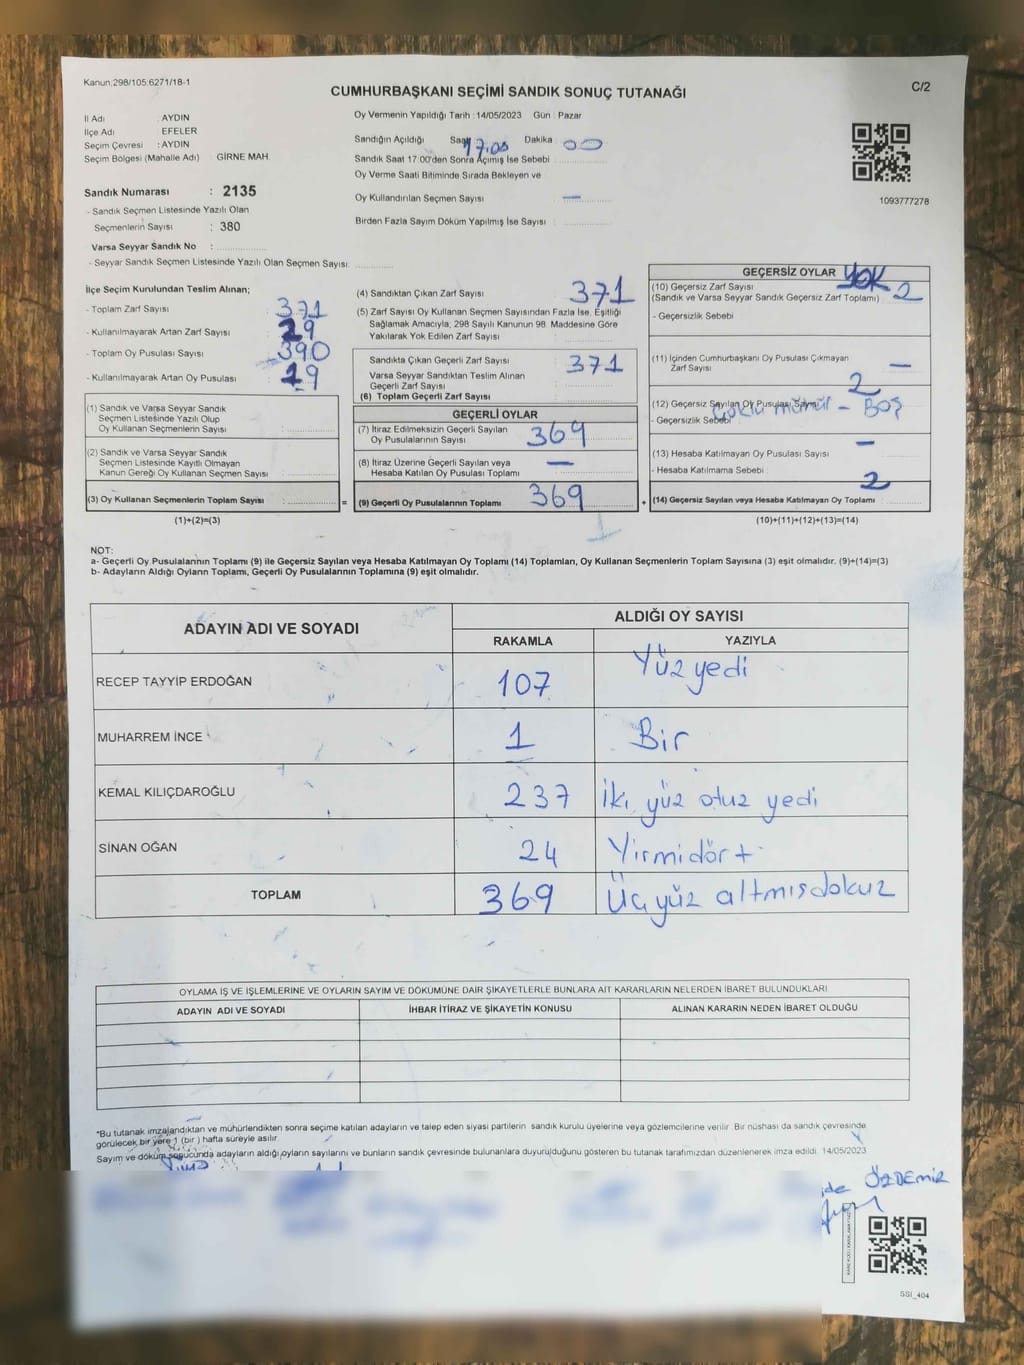 Kanun:298/105;6271/18-1
C/2
CUMHURBAŞKANI SEÇİMİ SANDIK SONUÇ TUTANAĞI
İl Adı : AYDIN
İlçe Adı : EFELER
Seçim Çevresi : AYDIN
Seçim Bölgesi (Mahalle Adı) : GİRNE MAH.
Sandık Numarası : 2135
- Sandık Seçmen Listesinde Yazılı Olan
Seçmenlerin Sayısı : 380
Varsa Seyyar Sandık No :
- Seyyar Sandık Seçmen Listesinde Yazılı Olan Seçmen Sayısı:
Oy Vermenin Yapıldığı Tarih : 14/05/2023 Gün : Pazar
Sandığın Açıldığı Saat 17.00 Dakika : 00
Sandık Saat 17:00'den Sonra Açımış İse Sebebi
Oy Verme Saati Bitiminde Sırada Bekleyen ve
Oy Kullandırılan Seçmen Sayısı : —
Birden Fazla Sayım Döküm Yapılmış İse Sayısı :
1093777278
İlçe Seçim Kurulundan Teslim Alınan;
- Toplam Zarf Sayısı : 371
- Kullanılmayarak Artan Zarf Sayısı : 29
- Toplam Oy Pusulası Sayısı : 390
- Kullanılmayarak Artan Oy Pusulası : 19
(1) Sandık ve Varsa Seyyar Sandık
Seçmen Listesinde Yazılı Olup
Oy Kullanan Seçmenlerin Sayısı :
(2) Sandık ve Varsa Seyyar Sandık
Seçmen Listesinde Kayıtlı Olmayan
Kanun Gereği Oy Kullanan Seçmen Sayısı :
(3) Oy Kullanan Seçmenlerin Toplam Sayısı : =
(1)+(2)=(3)
(4) Sandıktan Çıkan Zarf Sayısı : 371
(5) Zarf Sayısı Oy Kullanan Seçmen Sayısından Fazla İse, Eşitliği
Sağlamak Amacıyla, 298 Sayılı Kanunun 98. Maddesine Göre
Yakılarak Yok Edilen Zarf Sayısı :
Sandıkta Çıkan Geçerli Zarf Sayısı : 371
Varsa Seyyar Sandıktan Teslim Alınan
Geçerli Zarf Sayısı :
(6) Toplam Geçerli Zarf Sayısı :
GEÇERLİ OYLAR
(7) İtiraz Edilmeksizin Geçerli Sayılan
Oy Pusulalarının Sayısı : 369
(8) İtiraz Üzerine Geçerli Sayılan veya
Hesaba Katılan Oy Pusulası Toplamı : —
(9) Geçerli Oy Pusulalarının Toplamı : 369 +
1
GEÇERSİZ OYLAR YOK
(10) Geçersiz Zarf Sayısı
(Sandık ve Varsa Seyyar Sandık Geçersiz Zarf Toplamı) : 2
- Geçersizlik Sebebi
(11) İçinden Cumhurbaşkanı Oy Pusulası Çıkmayan
Zarf Sayısı : —
(12) Geçersiz Sayılan Oy Pusulası Sayısı : 2
- Geçersizlik Sebebi : Çoklu mühür - BOŞ
(13) Hesaba Katılmayan Oy Pusulası Sayısı : —
- Hesaba Katılmama Sebebi :
(14) Geçersiz Sayılan veya Hesaba Katılmayan Oy Toplamı : 2
(10)+(11)+(12)+(13)=(14)
NOT:
a- Geçerli Oy Pusulalarının Toplamı (9) ile Geçersiz Sayılan veya Hesaba Katılmayan Oy Toplamı (14) Toplamları, Oy Kullanan Seçmenlerin Toplam Sayısına (3) eşit olmalıdır. (9)+(14)=(3)
b- Adayların Aldığı Oyların Toplamı, Geçerli Oy Pusulalarının Toplamına (9) eşit olmalıdır.
ADAYIN ADI VE SOYADI ALDIĞI OY SAYISI
RAKAMLA YAZIYLA
RECEP TAYYİP ERDOĞAN 107 Yüz yedi
MUHARREM İNCE 1 Bir
KEMAL KILIÇDAROĞLU 237 İki yüz otuz yedi
SİNAN OĞAN 24 Yirmidört
TOPLAM 369 Üç yüz altmışdokuz
OYLAMA İŞ VE İŞLEMLERİNE VE OYLARIN SAYIM VE DÖKÜMÜNE DAİR ŞİKAYETLERLE BUNLARA AİT KARARLARIN NELERDEN İBARET BULUNDUKLARI
ADAYIN ADI VE SOYADI İHBAR İTİRAZ VE ŞİKAYETİN KONUSU ALINAN KARARIN NEDEN İBARET OLDUĞU
*Bu tutanak imzalandıktan ve mühürlendikten sonra seçime katılan adayların ve talep eden siyasi partilerin sandık kurulu üyelerine veya gözlemcilerine verilir. Bir nüshası da sandık çevresinde
görülecek bir yere 1 (bir) hafta süreyle asılır.
Sayım ve döküm sonucunda adayların aldığı oyların sayılarını ve bunların sandık çevresinde bulunanlara duyurulduğunu gösteren bu tutanak tarafımızdan düzenlenerek imza edildi. 14/05/2023
ÖZDEMİR
SSI_404